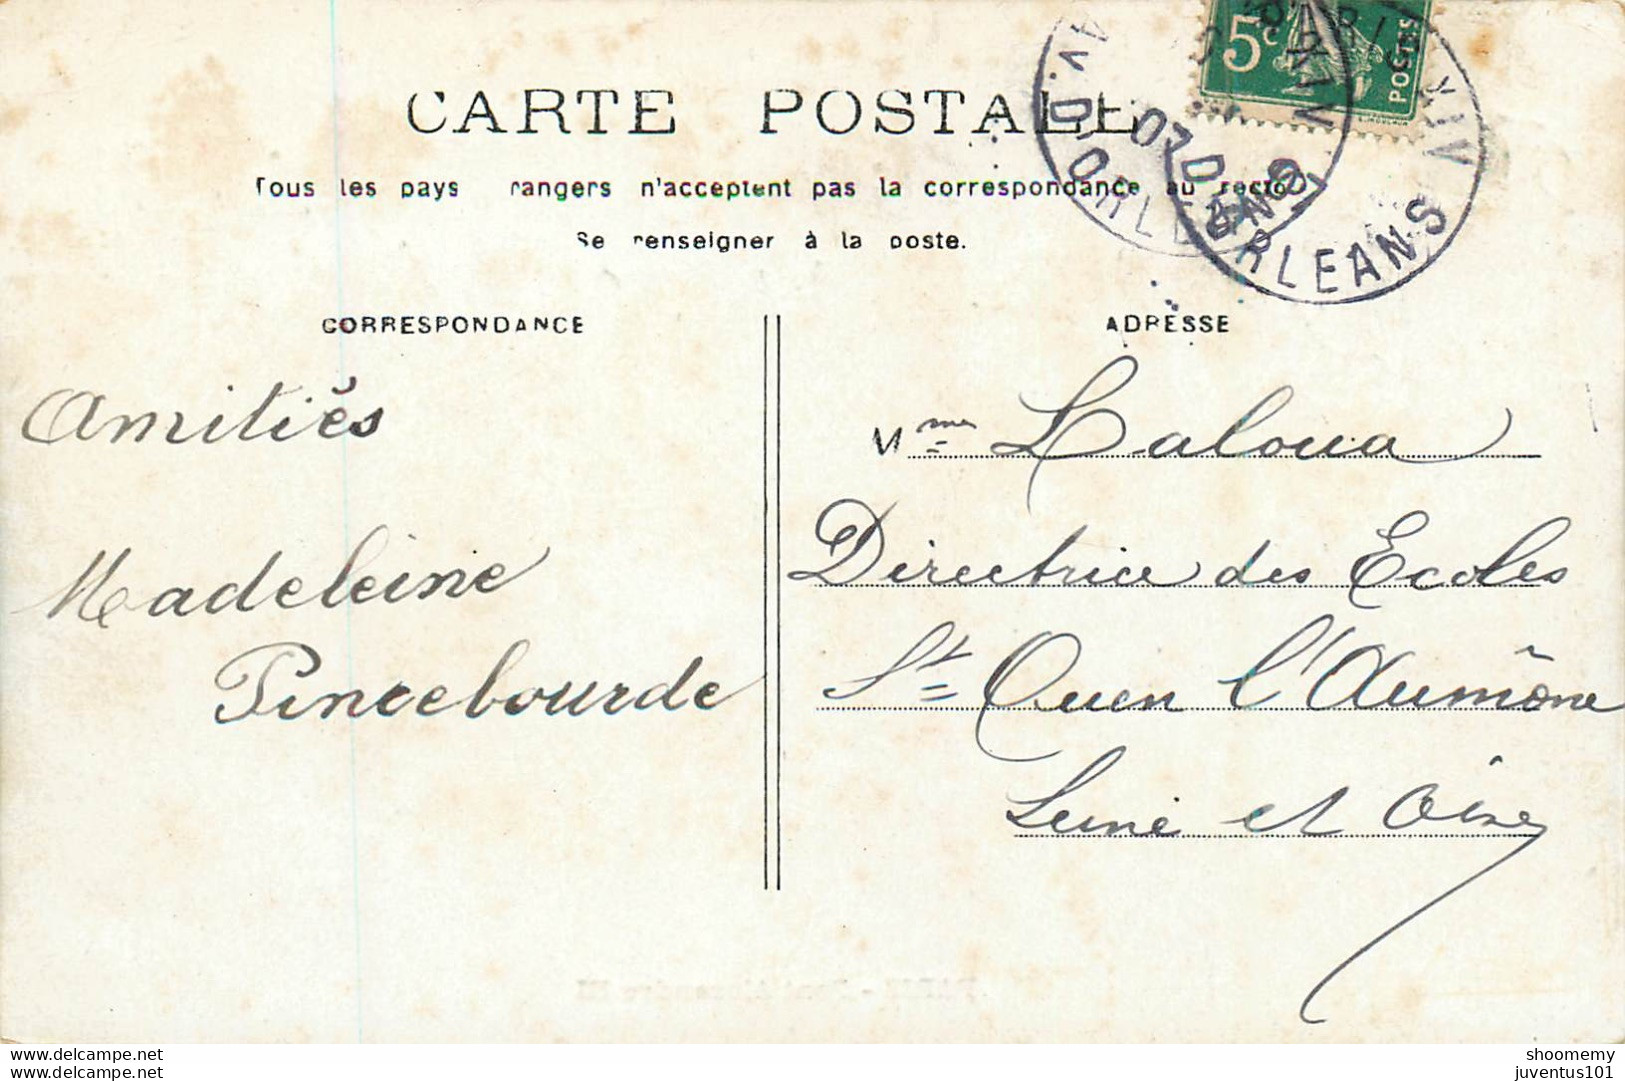 5c
POSTES
PARIS XIV
AV. D'ORLEANS
07
CARTE POSTALE
Tous les pays rangers n'acceptent pas la correspondance au recto
Se renseigner à la poste.
CORRESPONDANCE
ADRESSE
Amitiés
Madeleine
Pincebourde
Mme Laloua
Directrice des Ecoles
St Ouen l'Aumône
Seine et Oise
Delcampe.net
shoomemy
juventus101